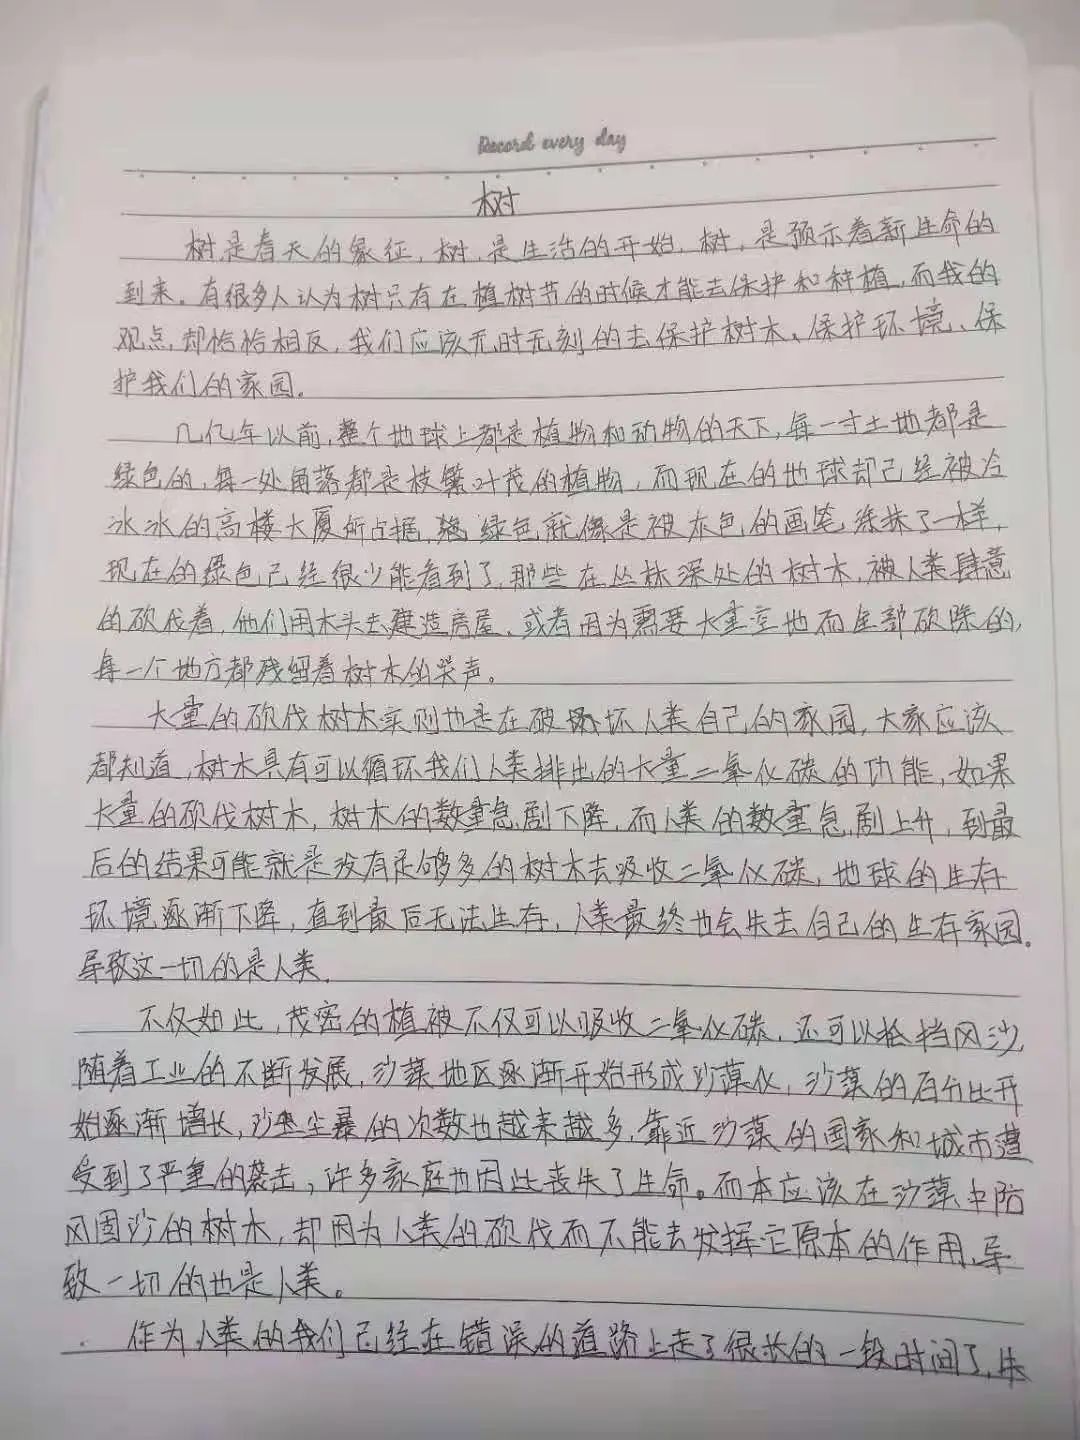 Record every day
树
树,是春天的象征,树,是生活的开始,树,是预示着新生命的
到来。有很多人认为树只有在植树节的时候才能去保护和种植,而我的
观点,却恰恰相反,我们应该无时无刻的去保护树木、保护环境、保
护我们的家园。
几亿年以前,整个地球上都是植物和动物的天下,每一寸土地都是
绿色的,每一处角落都是枝繁叶茂的植物,而现在的地球却已经被冷
冰冰的高楼大厦所占据,绿色就像是被灰色的画笔涂抹了一样,
现在的绿色已经很少能看到了,那些在丛林深处的树木,被人类肆意
的砍伐着,他们用木头去建造房屋、或者因为需要大量空地而全部砍除的,
每一个地方都残留着树木的哭声。
大量的砍伐树木实则也是在破坏人类自己的家园,大家应该
都知道,树木具有可以循环我们人类排出的大量二氧化碳的功能,如果
大量的砍伐树木,树木的数量急剧下降,而人类的数量急剧上升,到最
后的结果可能就是没有足够多的树木去吸收二氧化碳,地球的生存
环境逐渐下降,直到最后无法生存,人类最终也会失去自己的生存家园。
导致这一切的是人类。
不仅如此,茂密的植被不仅可以吸收二氧化碳,还可以抵挡风沙
随着工业的不断发展,沙漠地区逐渐开始形成沙漠化,沙漠的百分比开
始逐渐增长,沙尘暴的次数也越来越多,靠近沙漠的国家和城市遭
受到了严重的袭击,许多家庭也因此丧失了生命。而本应该在沙漠中防
风固沙的树木,却因为人类的砍伐而不能去发挥它原本的作用,导
致一切的也是人类。
作为人类的我们已经在错误的道路上走了很长的一段时间了,失